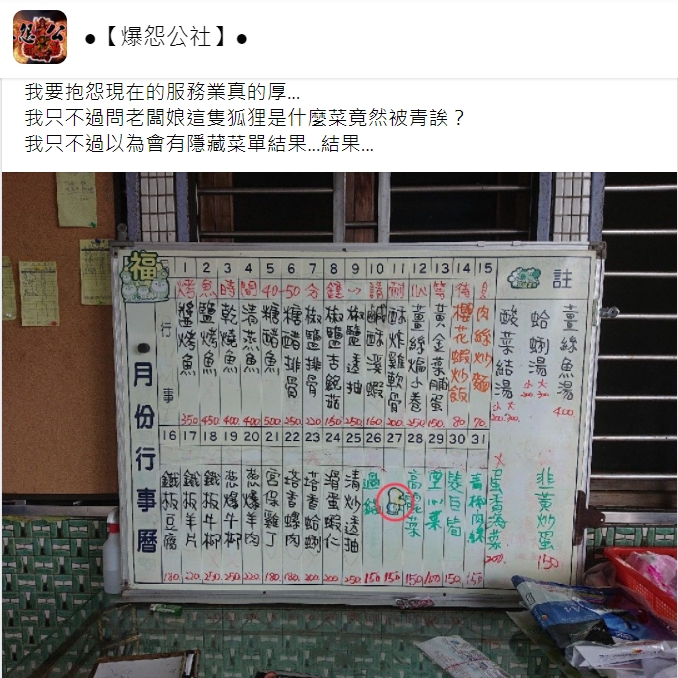 ●【爆怨公社】●
我要抱怨現在的服務業真的厚...
我只不過問老闆娘這隻狐狸是什麼菜竟然被青誒？
我只不過以為會有隱藏菜單結果...結果...
福
月份行事曆
行事
註
1 2 3 4 5 6 7 8 9 10 11 12 13 14 15
烤魚時間40-50分鐘…請耐心等待
醬烤魚 350
鹽烤魚 450
乾燒魚 400
清蒸魚 400
糖醋魚 500
糖醋排骨 250
椒鹽排骨 220
椒鹽杏鮑菇 150
椒鹽透抽 250
鹹酥溪蝦 160
酥炸雞軟骨 200
薑絲煸小卷 250
黃金菜脯蛋 150
櫻花蝦炒飯 80
肉絲炒麵 70
酸菜結湯 小 大
蛤蜊湯 小 大
薑絲魚湯 400
16 17 18 19 20 21 22 23 24 25 26 27 28 29 30 31
鐵板豆腐 180
鐵板羊片 220
鐵板牛柳 250
蔥爆牛柳 250
蔥爆羊肉 220
宮保雞丁 180
塔香螺肉 180
塔香蛤蜊 200
滑蛋蝦仁 200
清炒透抽 250
過貓 150
150
高麗菜 150
空心菜 100
150
青椒肉絲 150
蛋香海菜 200
韭黃炒蛋 150